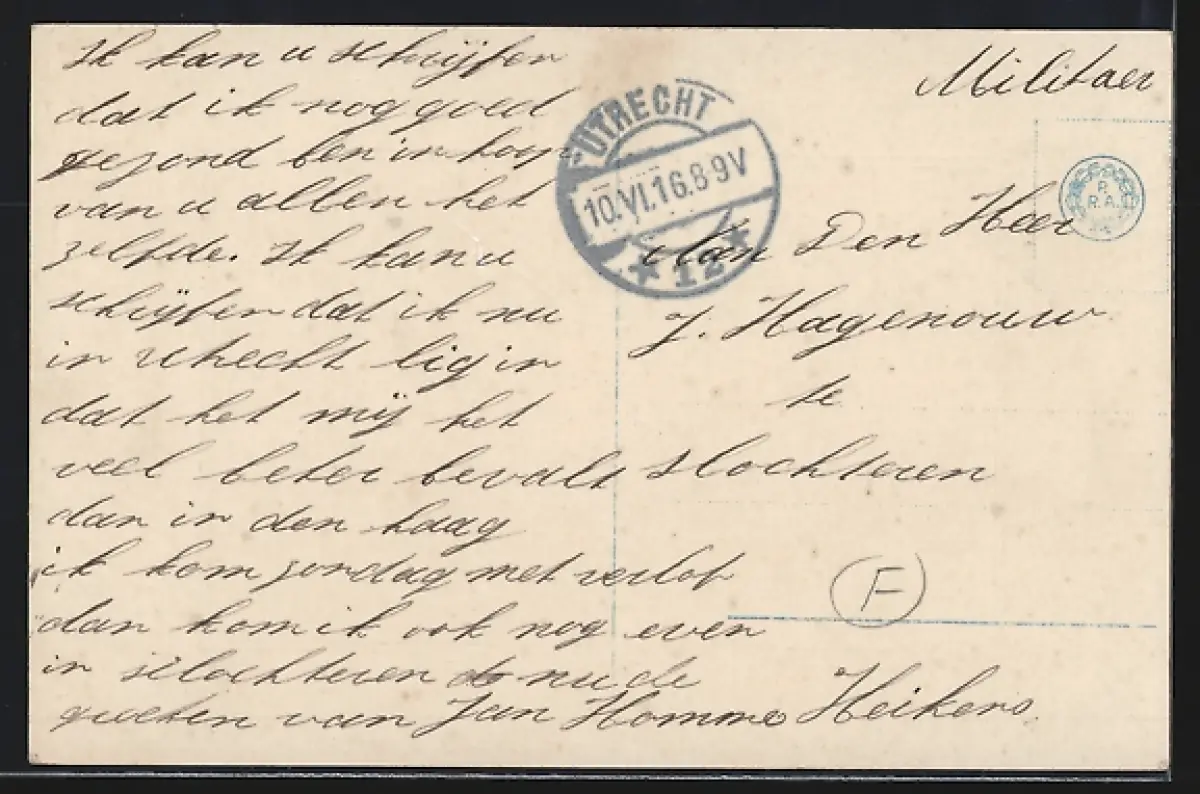 Ik kan u schrijfen
dat ik nog goed
gezond ben in hoop
van u allen het
zelfde. Ik kan u
schrijfen dat ik nu
in Utrecht lig in
dat het mij het
veel beter bevalt
dan in den haag
ik kom zondag met verlof
dan kom ik ook nog even
in slochteren nu de
groeten van Jan Homme Heikens
Militaer
UTRECHT
10.VI.16.8-9V
* 12 *
R.
R.A.
Aan Den Heer
J. Hagenouw
te
slochteren
F